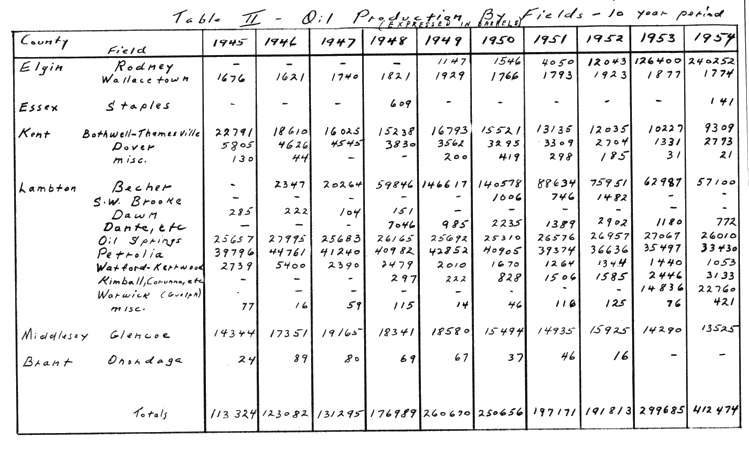 Table II - Oil Production By Fields - 10 year period
(EXPRESSED IN BARRELS)
County Field 1945 1946 1947 1948 1949 1950 1951 1952 1953 1954
Elgin Rodney - - - - 1147 1546 4050 12043 126400 240252
Wallacetown 1676 1621 1740 1821 1929 1766 1793 1923 1877 1774
Essex Staples - - - 609 - - - - - 141
Kent Bothwell-Thamesville 22791 18610 16025 15238 16793 15521 13135 12035 10227 9309
Dover 5805 4626 4545 3830 3562 3295 3309 2704 1331 2793
misc. 130 44 - - 200 419 298 185 31 21
Lambton Becher - 2347 20264 59846 146617 140578 88634 75951 62987 57100
S.W. Brooke - - - - - 1006 746 1482 - -
Dawn 285 222 104 151 - - - - - -
Dante, etc - - - 7046 985 2235 1389 2902 1180 772
Oil Springs 25657 27995 25683 26165 25692 25310 26576 26957 27067 26010
Petrolia 39796 44761 41240 40982 42852 40905 39374 36636 35497 33430
Watford-Kertwood 2739 5400 2390 2479 2010 1670 1264 1344 1440 1053
Kimball, Corunna, etc - - - 297 222 828 1506 1585 2446 3133
Warwick (Guelph) - - - - - - - - 14836 22760
misc. 77 16 59 115 14 46 116 125 76 421
Middlesex Glencoe 14344 17351 19165 18341 18580 15494 14935 15925 14290 13525
Brant Onondaga 24 89 80 69 67 37 46 16 - -
Totals 113324 123082 131295 176989 260670 250656 197171 191813 299685 412474